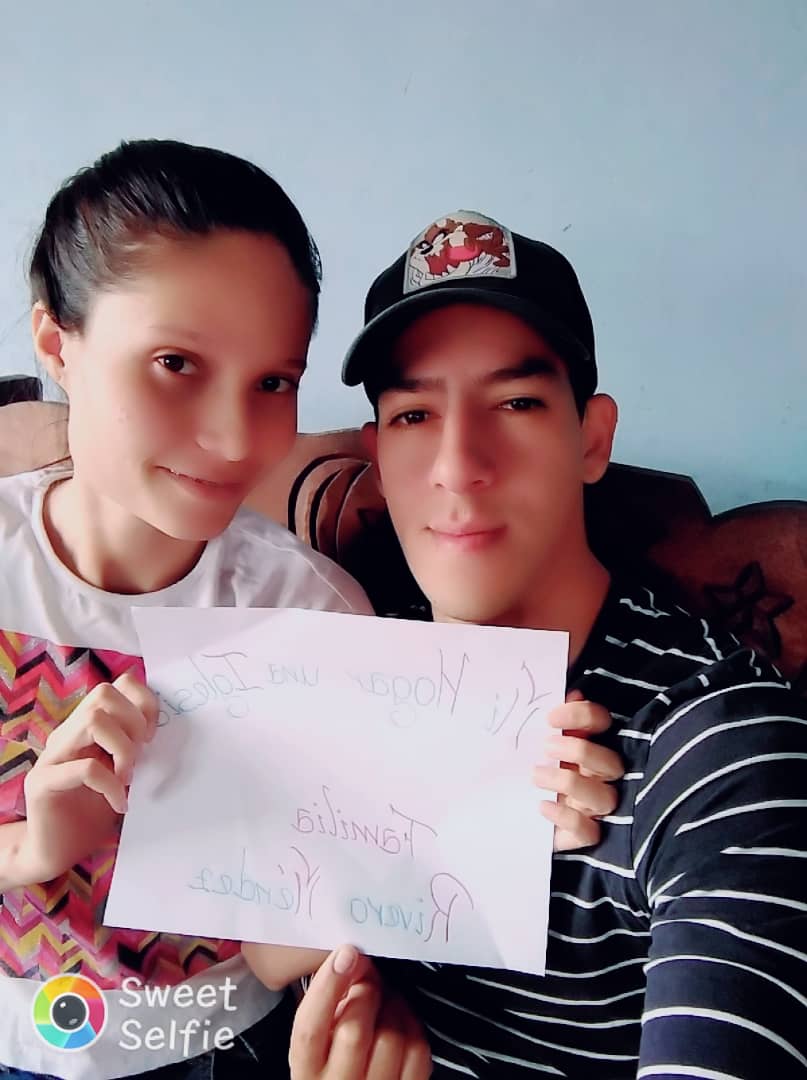 Mi Hogar una Iglesia
Familia
Rivero Méndez
Sweet
Selfie